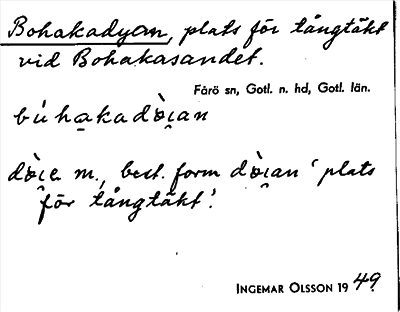 Bohakadyan, plats för tångtäkt
vid Bohakasandet.
Fårö sn, Gotl. n. hd, Gotl. län.
m., best. form ‘plats
för tångtäkt’.
INGEMAR OLSSON 1949